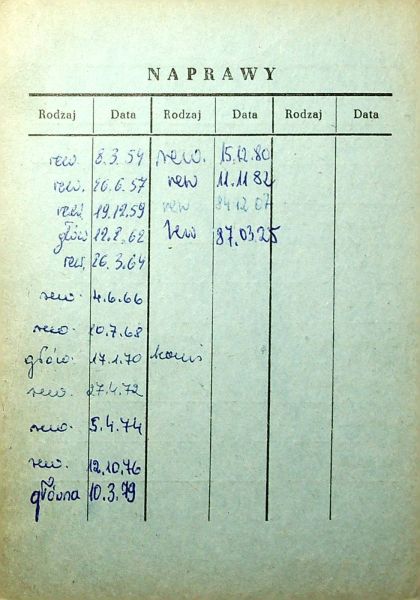 NAPRAWY
Rodzaj Data Rodzaj Data Rodzaj Data
rew. 8.3.54 rew. 15.12.80
rew. 26.6.57 rew 11.11 82
rew. 19.12.59 rew 84 12 07
głów 12.8.62 rew 87.03.25
rew. 26.3.64
rew. 4.6.66
rew. 20.7.68
głów. 17.1.70
rew. 27.4.72
rew. 5.4.74
rew. 12.10.76
główna 10.3.79